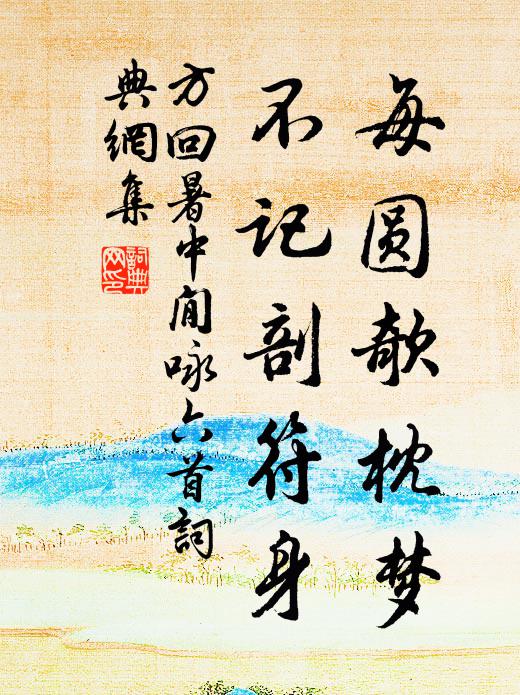 每圆欹枕梦
不记剖符身
方回暑中闲咏六首詞
典網集
詞典
网印